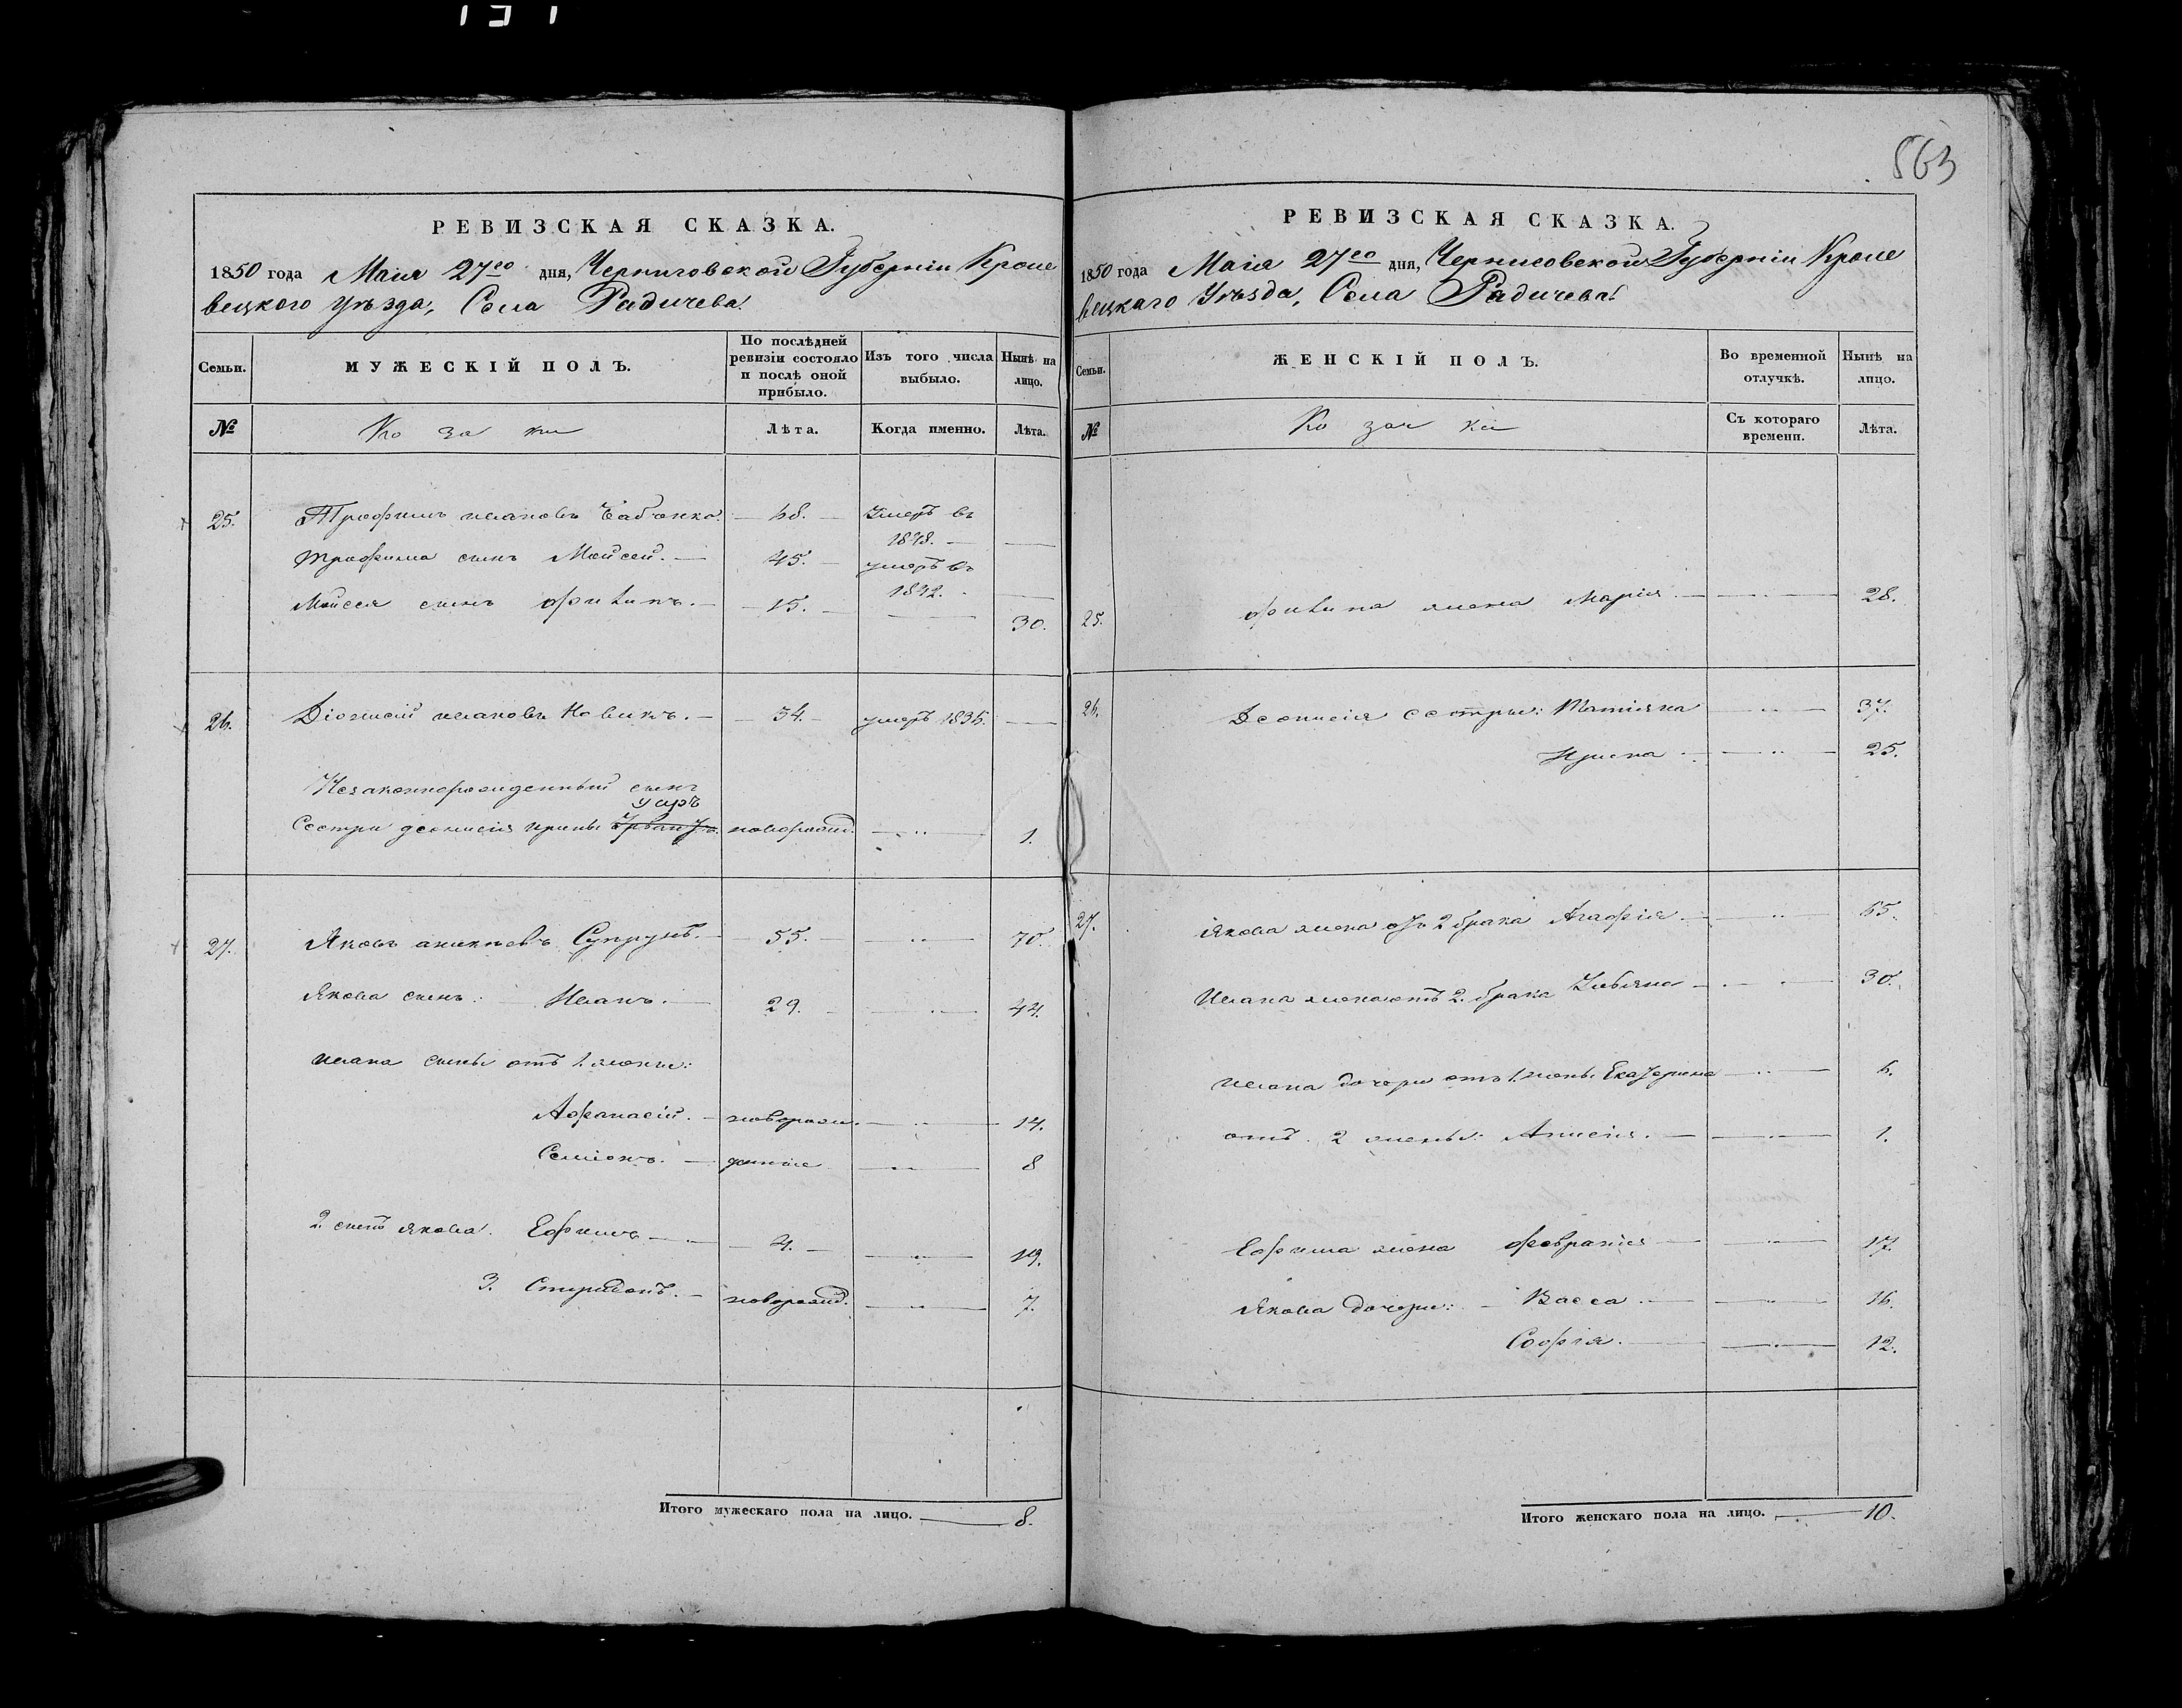 563
РЕВИЗСКАЯ СКАЗКА.
1850 года Маия 27го дня, Черниговской Губерніи Кроле
вецкого уѣзда, Села Радичева.
Семьи.
МУЖЕСКІЙ ПОЛЪ.
По послѣдней ревизіи состояло и послѣ оной прибыло.
Изъ того числа выбыло.
Нынѣ на лицо.
№
Козаки
Лѣта.
Когда именно.
Лѣта.
25. Трофимъ ивановъ — 68. — Умеръ въ
1848. —
Трофима сынъ Моисей. — 45. — умеръ въ
1842. —
Моисея сынъ Филипъ. — 15. — 30.
26. Діонисій ивановъ Новикъ. — 34. — умеръ 1836. —
Незаконнорожденный сынъ
Сестри деонисія ирины новорожд. — 1.
27. Яковъ Супрунъ. — 55. — 70.
Якова сынъ: Иванъ. — 29. — 44.
ивана сыны отъ 1. жены:
Афанасій. — новорож. — 14.
Семіонъ. — денніе — 8
2. сынъ якова. Ефимъ — 4. — 19.
3. Спиридонъ. — новорожд. — 7.
Итого мужескаго пола на лицо. — 8.
РЕВИЗСКАЯ СКАЗКА.
1850 года Маія 27го дня, Черниговской Губерніи Кроле
вецкаго Уѣзда, Села Радичева.
Семьи.
ЖЕНСКІЙ ПОЛЪ.
Во временной отлучкѣ.
Нынѣ на лицо.
№
Козачки
Съ котораго времени.
Лѣта.
25. Филипа жена Марія — 28.
26. Деонисія сестры: Татіяна — 37.
Ирина — 25.
27. Якова жена отъ 2 брака Агафія. — 65.
Ивана жена отъ 2. брака Ульяна — 30.
ивана дочери отъ 1. жены Екатерина — 6.
отъ 2 жены: Анисія. — 1.
Ефима жена Февронія — 17.
Якова дочери: — Васса — 16.
Софія. — 12.
Итого женскаго пола на лицо. — 10.